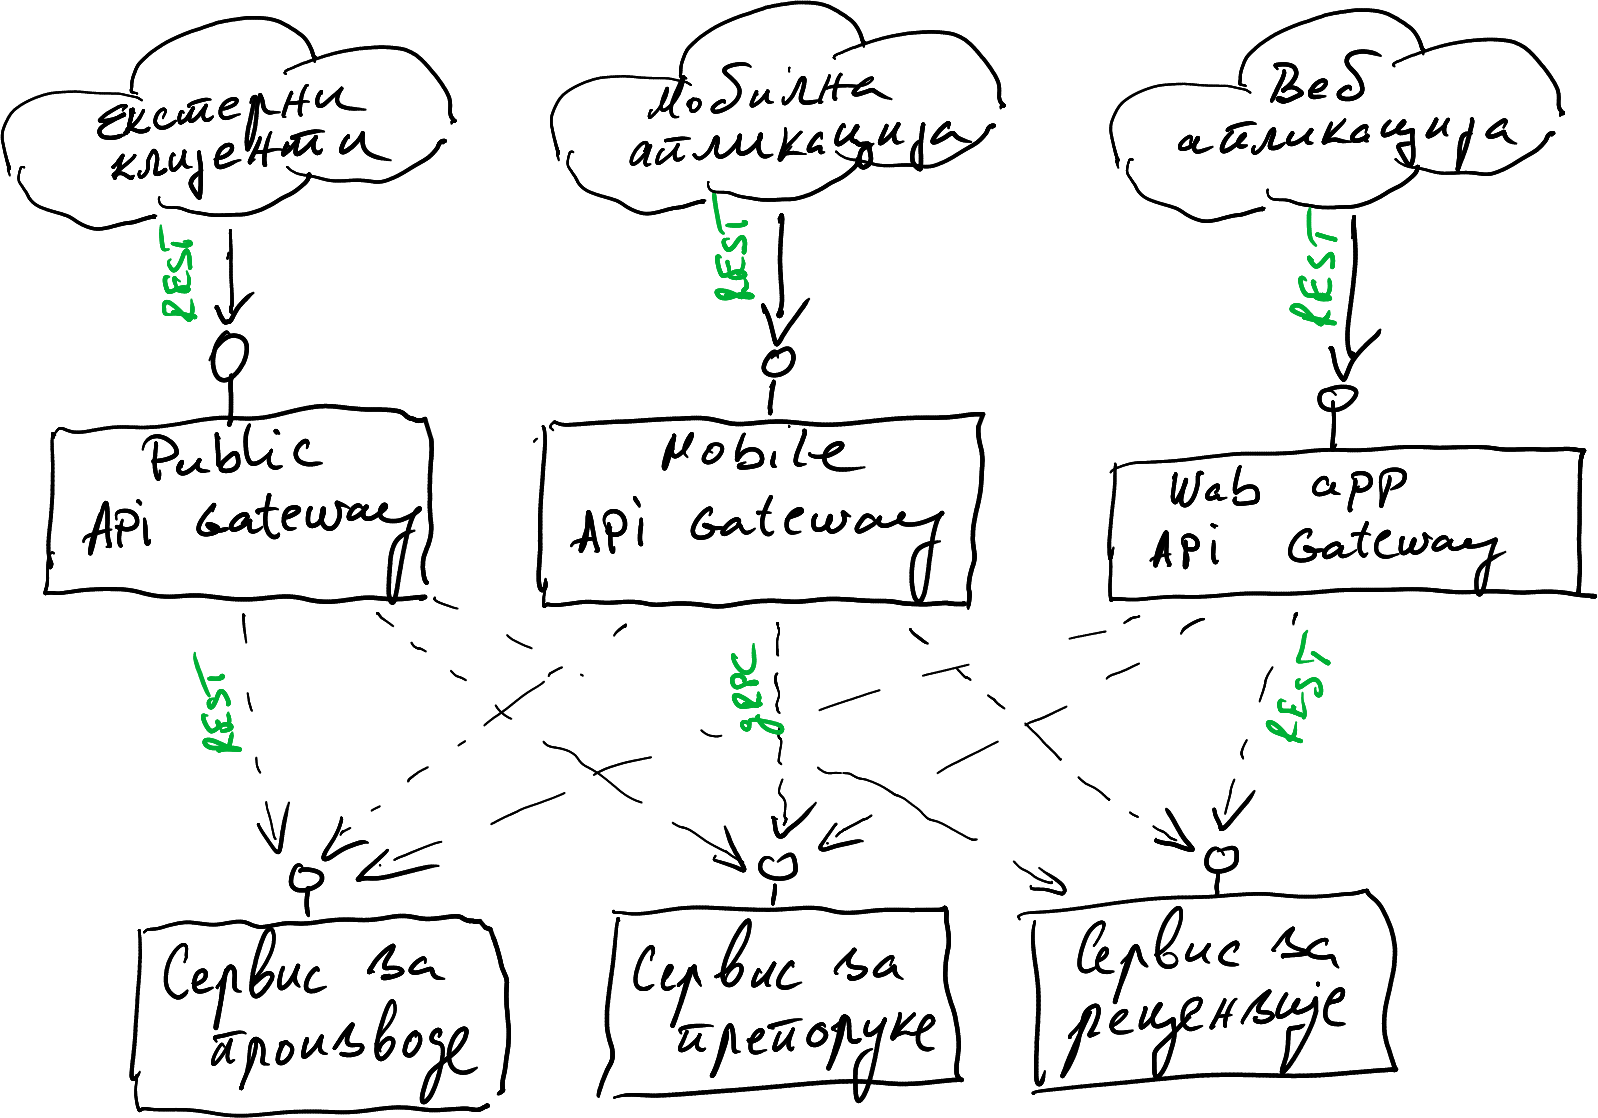 Екстерни
клијенти
Мобилна
апликација
Веб
апликација
REST
REST
REST
Public
APi Gateway
Mobile
APi Gateway
Wab app
APi Gateway
REST
gRPC
REST
Сервис за
производе
Сервис за
препоруке
Сервис за
рецензије